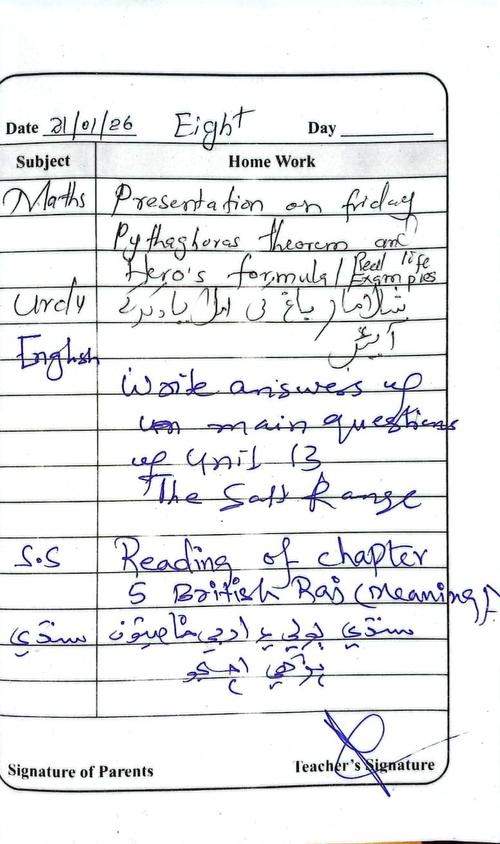 Date 21/01/26 Eight Day
Subject Home Work
Maths Presentation on friday
Pythaghoras theorem and
Hero's formula/Real life Examples
Urdu شالامار باغ کی املا یاد کرکے
آئیں
English
Write answers of
main questions
of Unit 13
The Salt Range
S.S Reading of chapter
5 British Raj (Meaning)
سنڌي سنڌي ٻولي ۽ ادبي
Signature of Parents Teacher's Signature